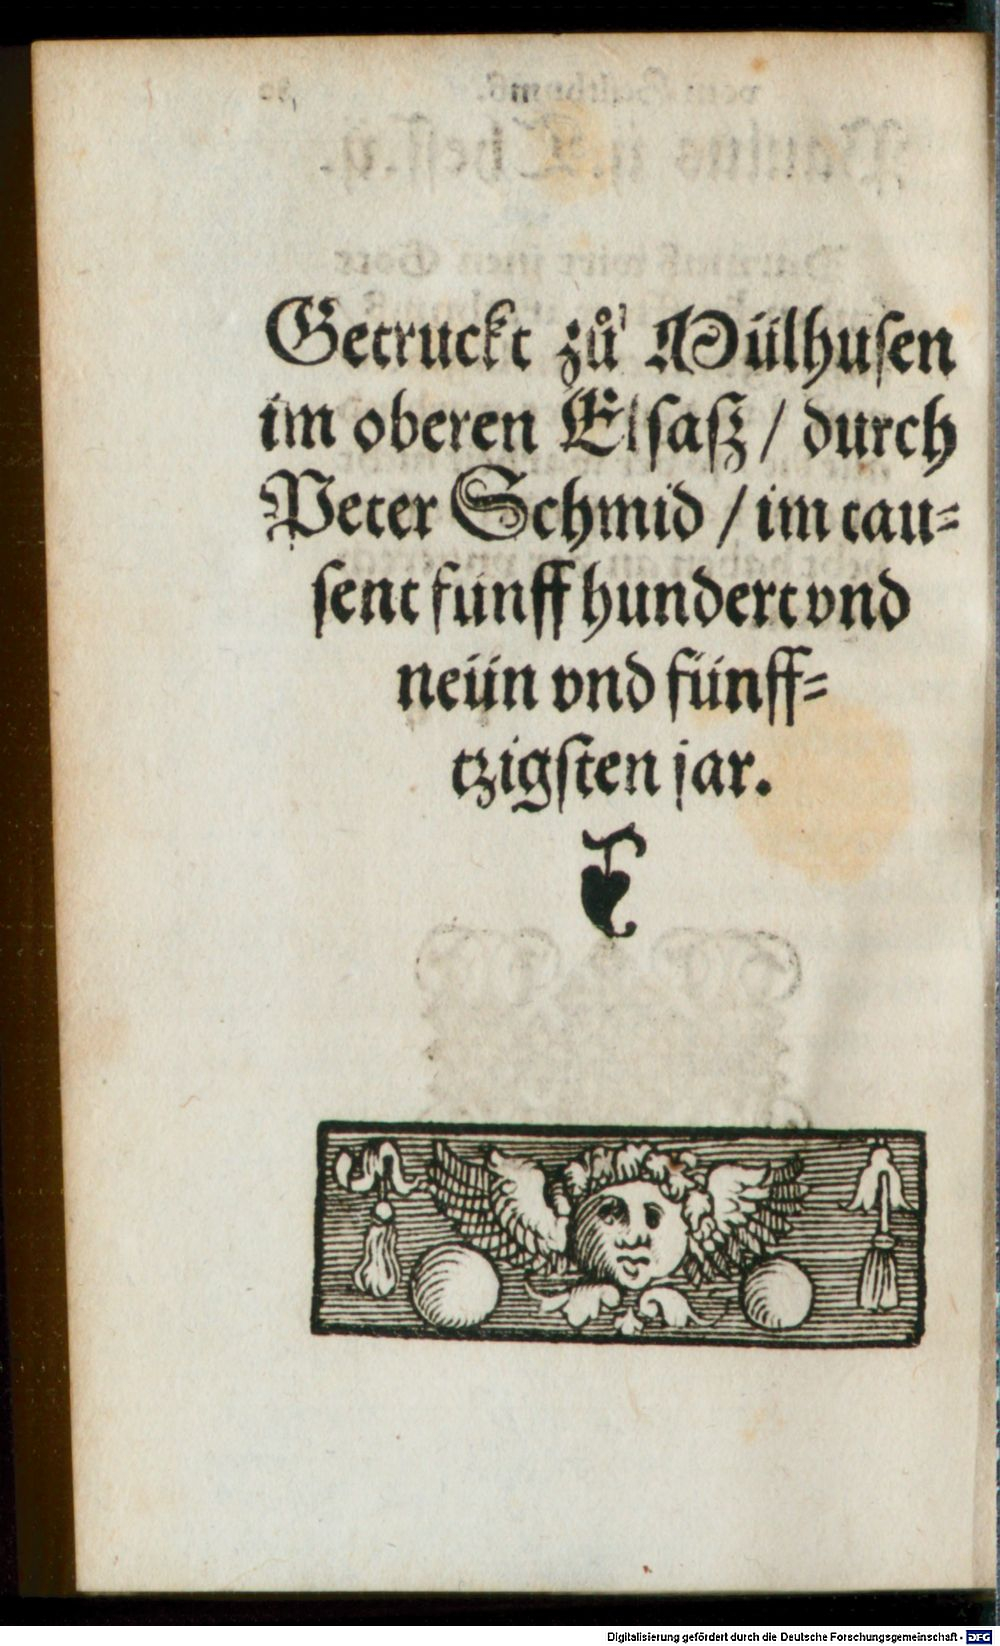 Getruckt zů Mülhusen
im oberen Elsasz / durch
Peter Schmid / im tau⸗
sent fünff hundert vnd
neün vnd fünff⸗
tzigsten jar.
Digitalisierung gefördert durch die Deutsche Forschungsgemeinschaft - DFG